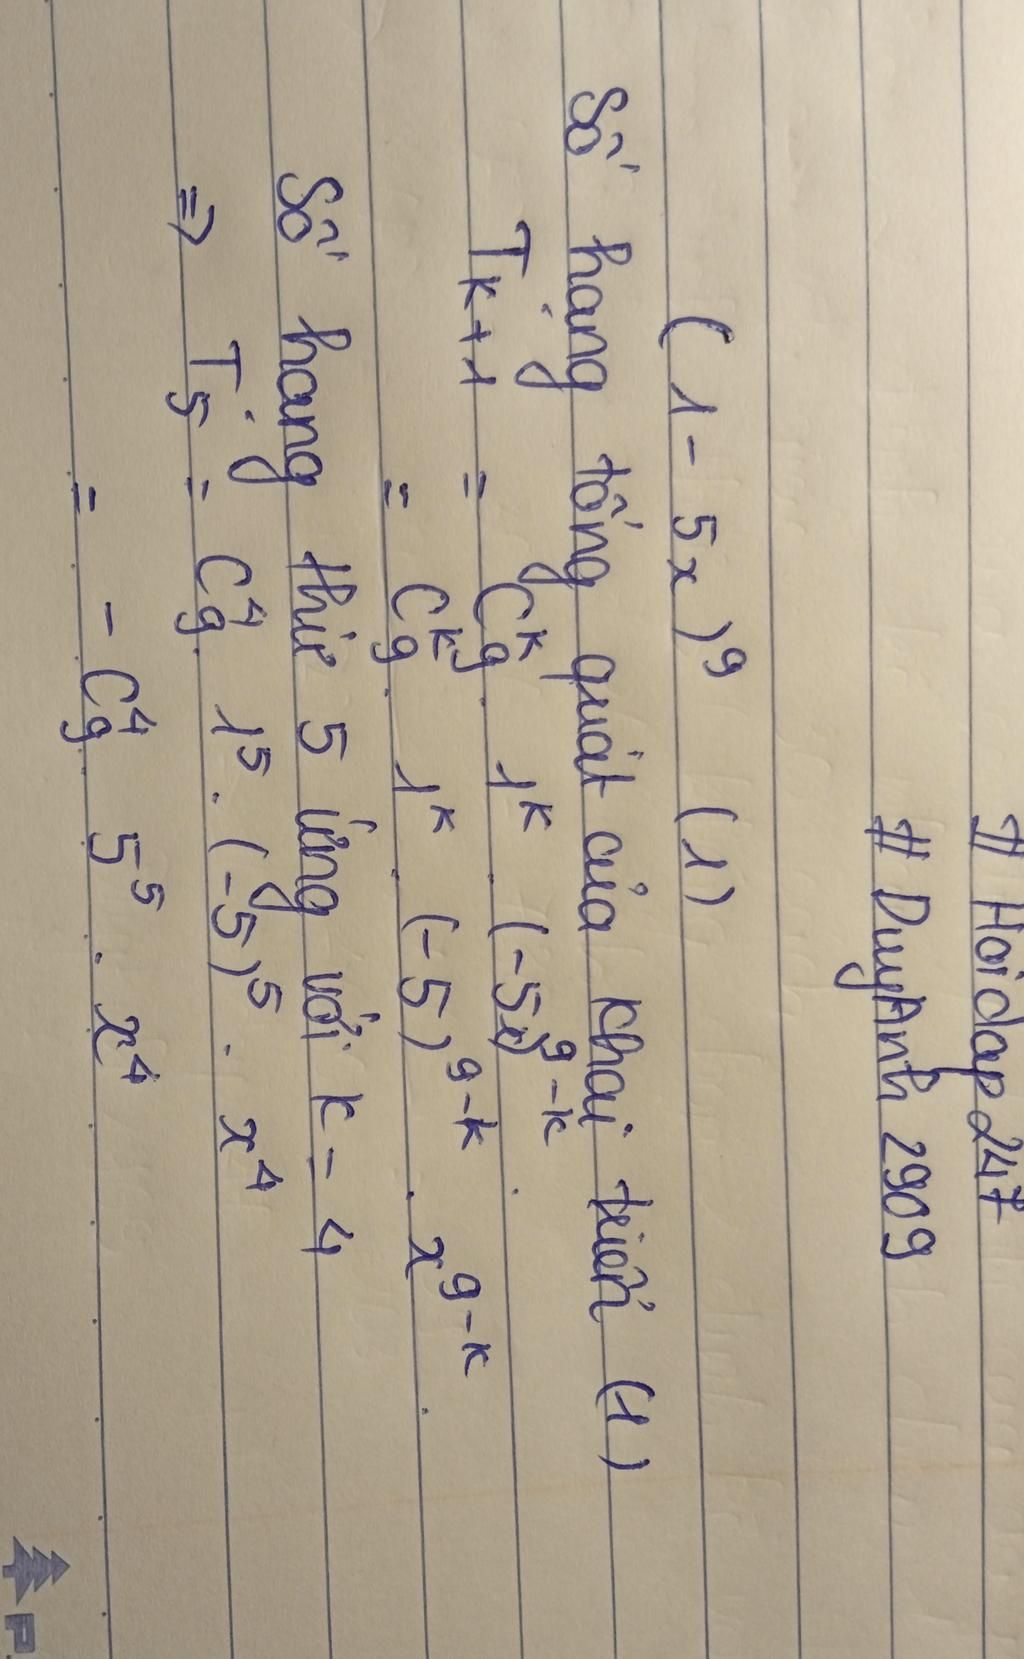 # Hoidap247
# DuyAnh 2909
(1 - 5x)⁹ (1)
Số hạng tổng quát của khai triển (1)
Tₖ₊₁ = C₉ᵏ . 1ᵏ . (-5x)⁹⁻ᵏ .
= C₉ᵏ . 1ᵏ . (-5)⁹⁻ᵏ . x⁹⁻ᵏ .
Số hạng thứ 5 ứng với k = 4
=> T₅ = C₉⁴ . 1⁵ . (-5)⁵ . x⁴
= - C₉⁴ . 5⁵ . x⁴
P